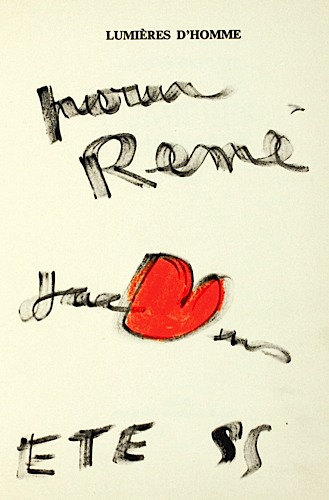 LUMIÈRES D'HOMME
pour
René
ETE 55